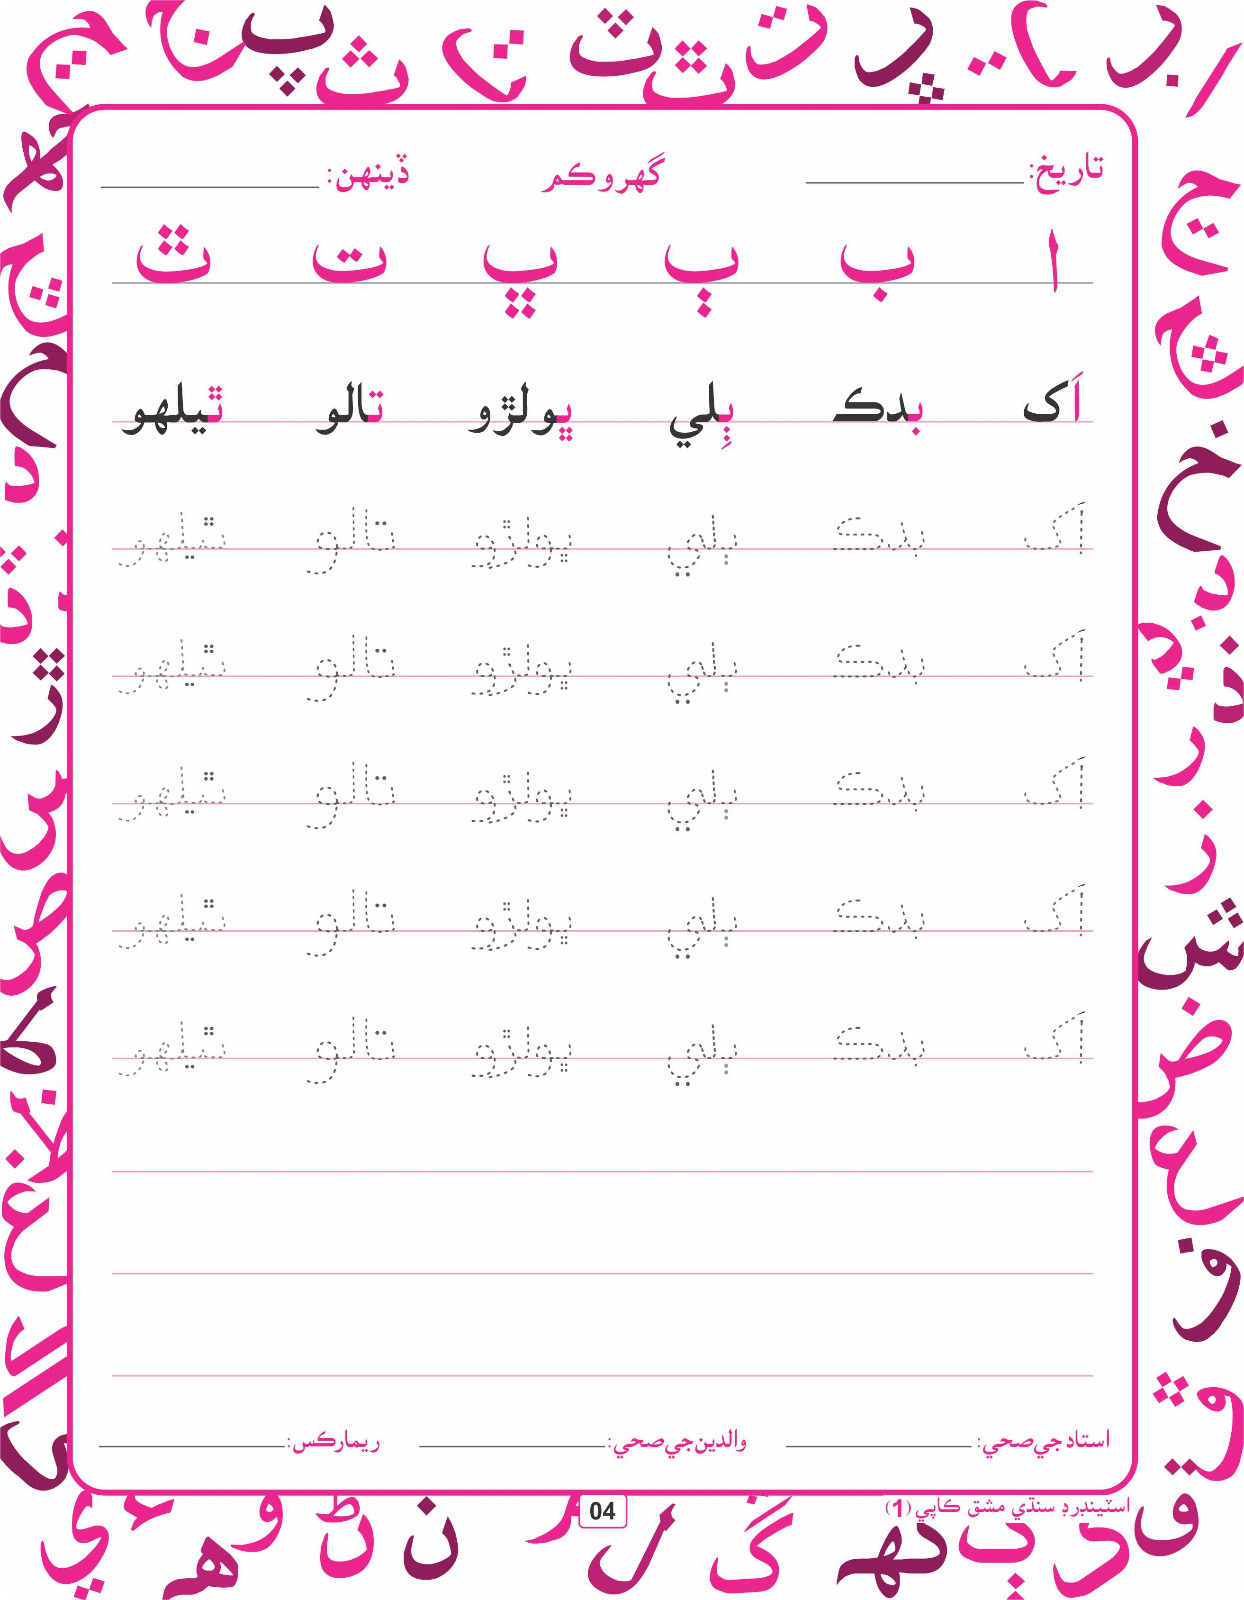 تاريخ: گهرو ڪم ڏينهن:
ا ب ٻ ڀ ت ٿ
اَک بدڪ ٻِلي ڀولڙو تالو ٿيلهو
اَک بدڪ ٻلي ڀولڙو تالو ٿيلهو
اَک بدڪ ٻلي ڀولڙو تالو ٿيلهو
اَک بدڪ ٻلي ڀولڙو تالو ٿيلهو
اَک بدڪ ٻلي ڀولڙو تالو ٿيلهو
اَک بدڪ ٻلي ڀولڙو تالو ٿيلهو
استاد جي صحي: والدين جي صحي: ريمارڪس:
اسٽينڊرڊ سنڌي مشق ڪاپي (1)
04